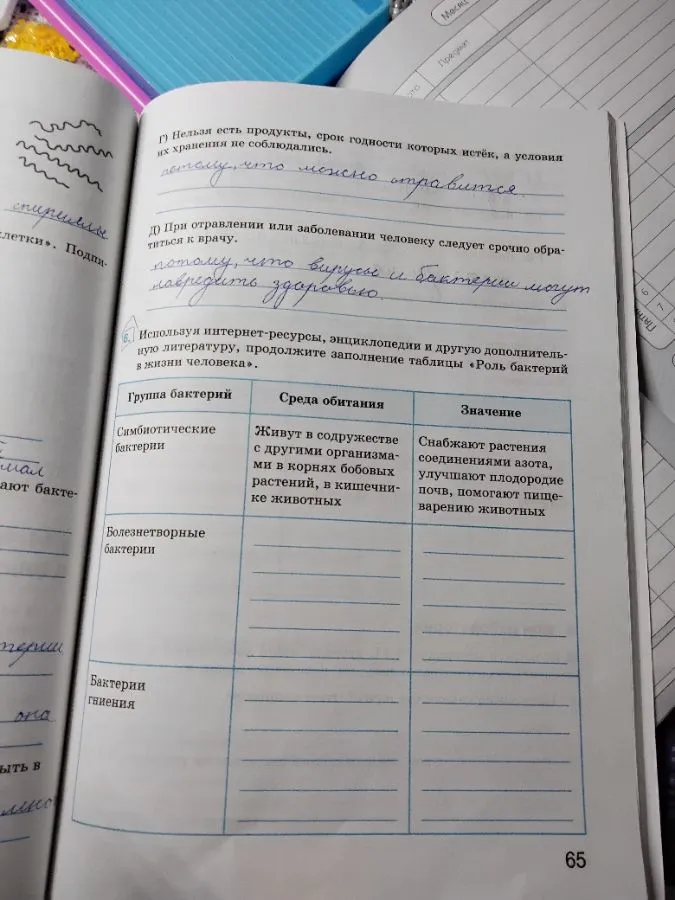 Месяц
Предмет
Г) Нельзя есть продукты, срок годности которых истёк, а условия
их хранения не соблюдались.
потому, что можно отравится.
Д) При отравлении или заболевании человеку следует срочно обра-
титься к врачу.
потому, что вирусы и бактерии могут
навредить здоровью.
6. Используя интернет-ресурсы, энциклопедии и другую дополнитель-
ную литературу, продолжите заполнение таблицы «Роль бактерий
в жизни человека».
Группа бактерий
Среда обитания
Значение
Симбиотические
бактерии
Живут в содружестве
с другими организма-
ми в корнях бобовых
растений, в кишечни-
ке животных
Снабжают растения
соединениями азота,
улучшают плодородие
почв, помогают пище-
варению животных
Болезнетворные
бактерии
Бактерии
гниения
65
спириллы
летки». Подпи-
ают бакте-
терии
она
ыть в